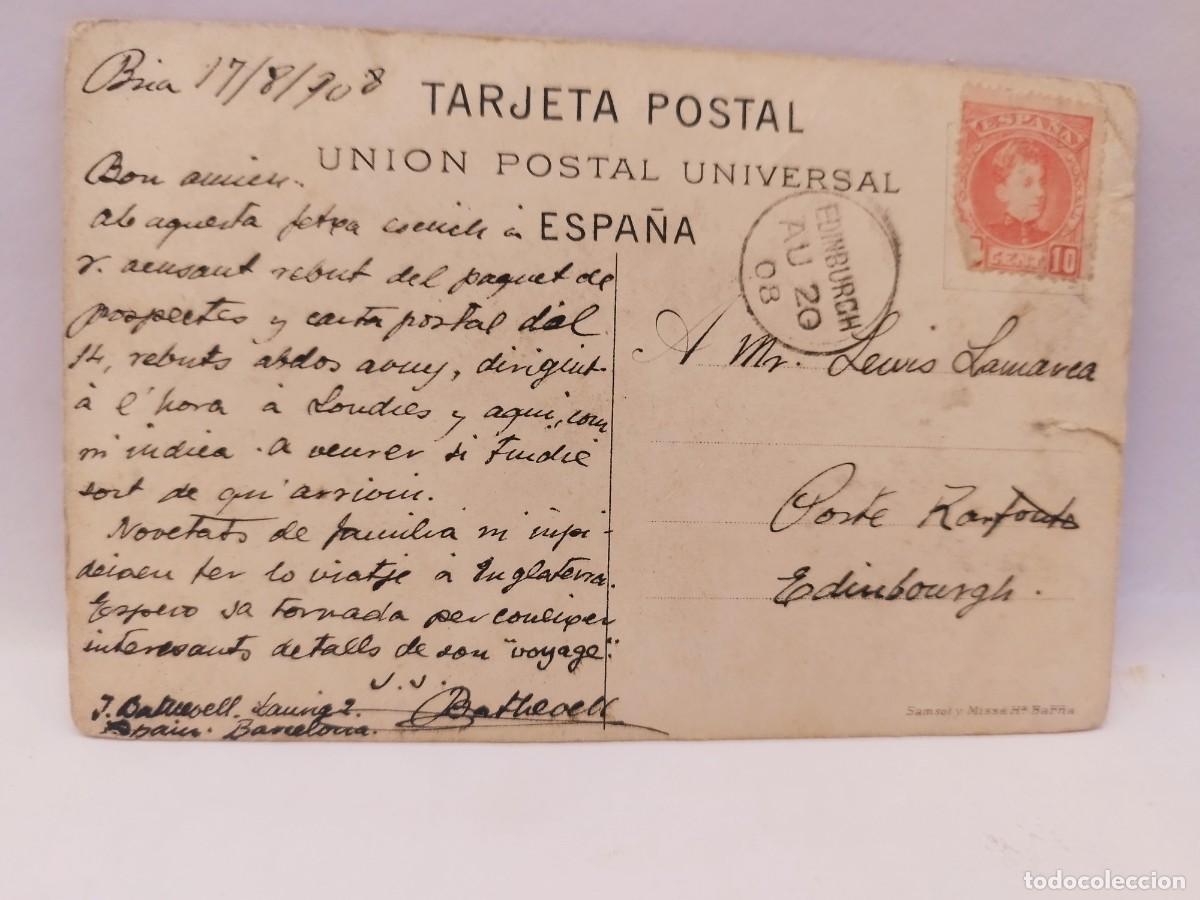 Bna 17/8/908
TARJETA POSTAL
UNION POSTAL UNIVERSAL
ESPAÑA
Bon amich.
ab aquesta letra escrich a
v. acusant rebut del paquet de
prospectes y carta postal del
14, rebuts abdos avuy, dirigint
à l'hora à Londres y aqui, com
m'indica. A veurer si tindré
sort de qu'arrivin.
Novetats de familia m'inpi-
deixen fer lo viatje à Inglaterra.
Espero sa tornada per coneixer
interesants detalls de son "voyage".
J. Bathevell. Lauria 2.
Spain. Barcelona.
Bathevell
ESPAÑA
10
EDINBURGH
AU 20
08
A Mr. Lewis Lamarca
Poste Restante
Edinbourgh.
Samsot y Missé Hs. Barña
todocoleccion